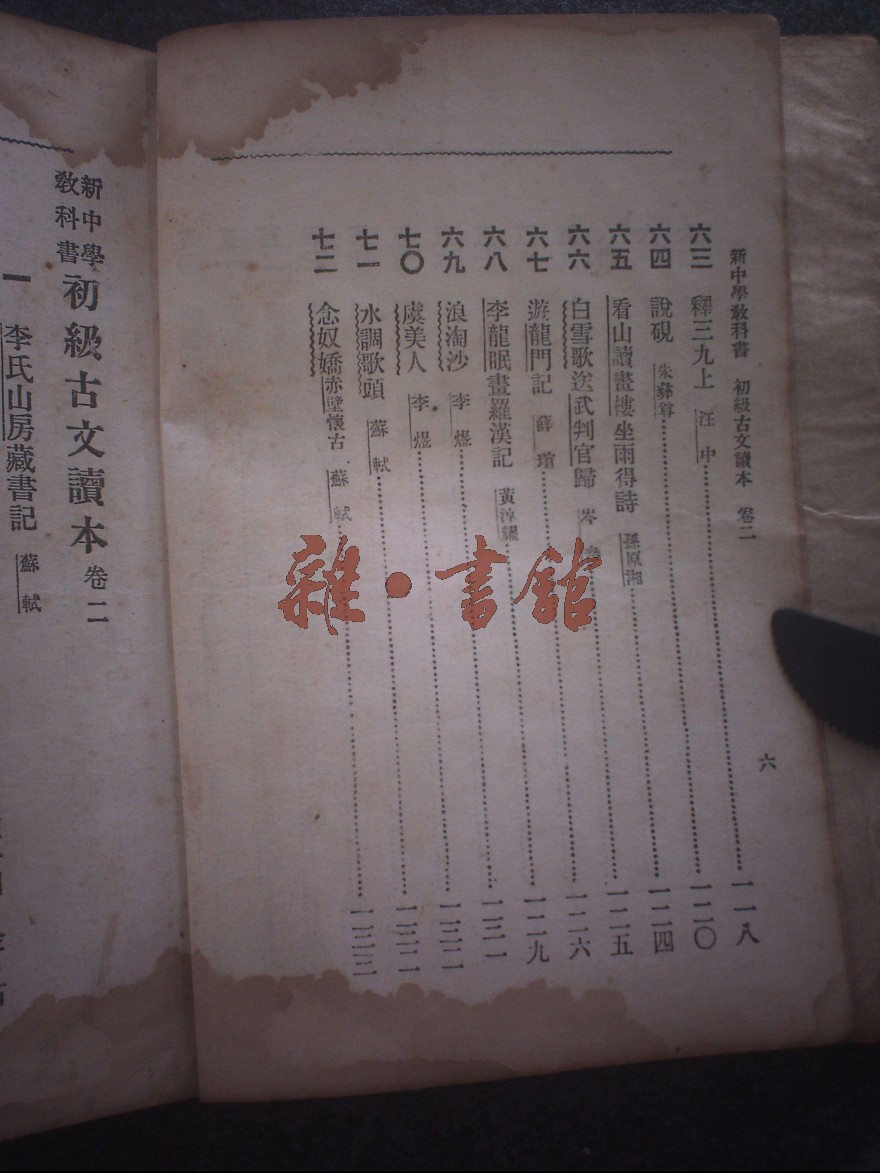 新中學教科書 初級古文讀本 卷二 六
六三 釋三九上 汪中 一一八
六四 說硯 朱彝尊 一二〇
六五 看山讀畫樓坐雨得詩 孫原湘 一二四
六六 白雪歌送武判官歸 岑參 一二五
六七 遊龍門記 薛瑄 一二六
六八 李龍眠畫羅漢記 黃淳耀 一二九
六九 浪淘沙 李煜 一三一
七〇 虞美人 李煜 一三二
七一 水調歌頭 蘇軾 一三二
七二 念奴嬌赤壁懷古 蘇軾 一三三
新中學教科書 初級古文讀本 卷二
一 李氏山房藏書記 蘇軾
雜·書館